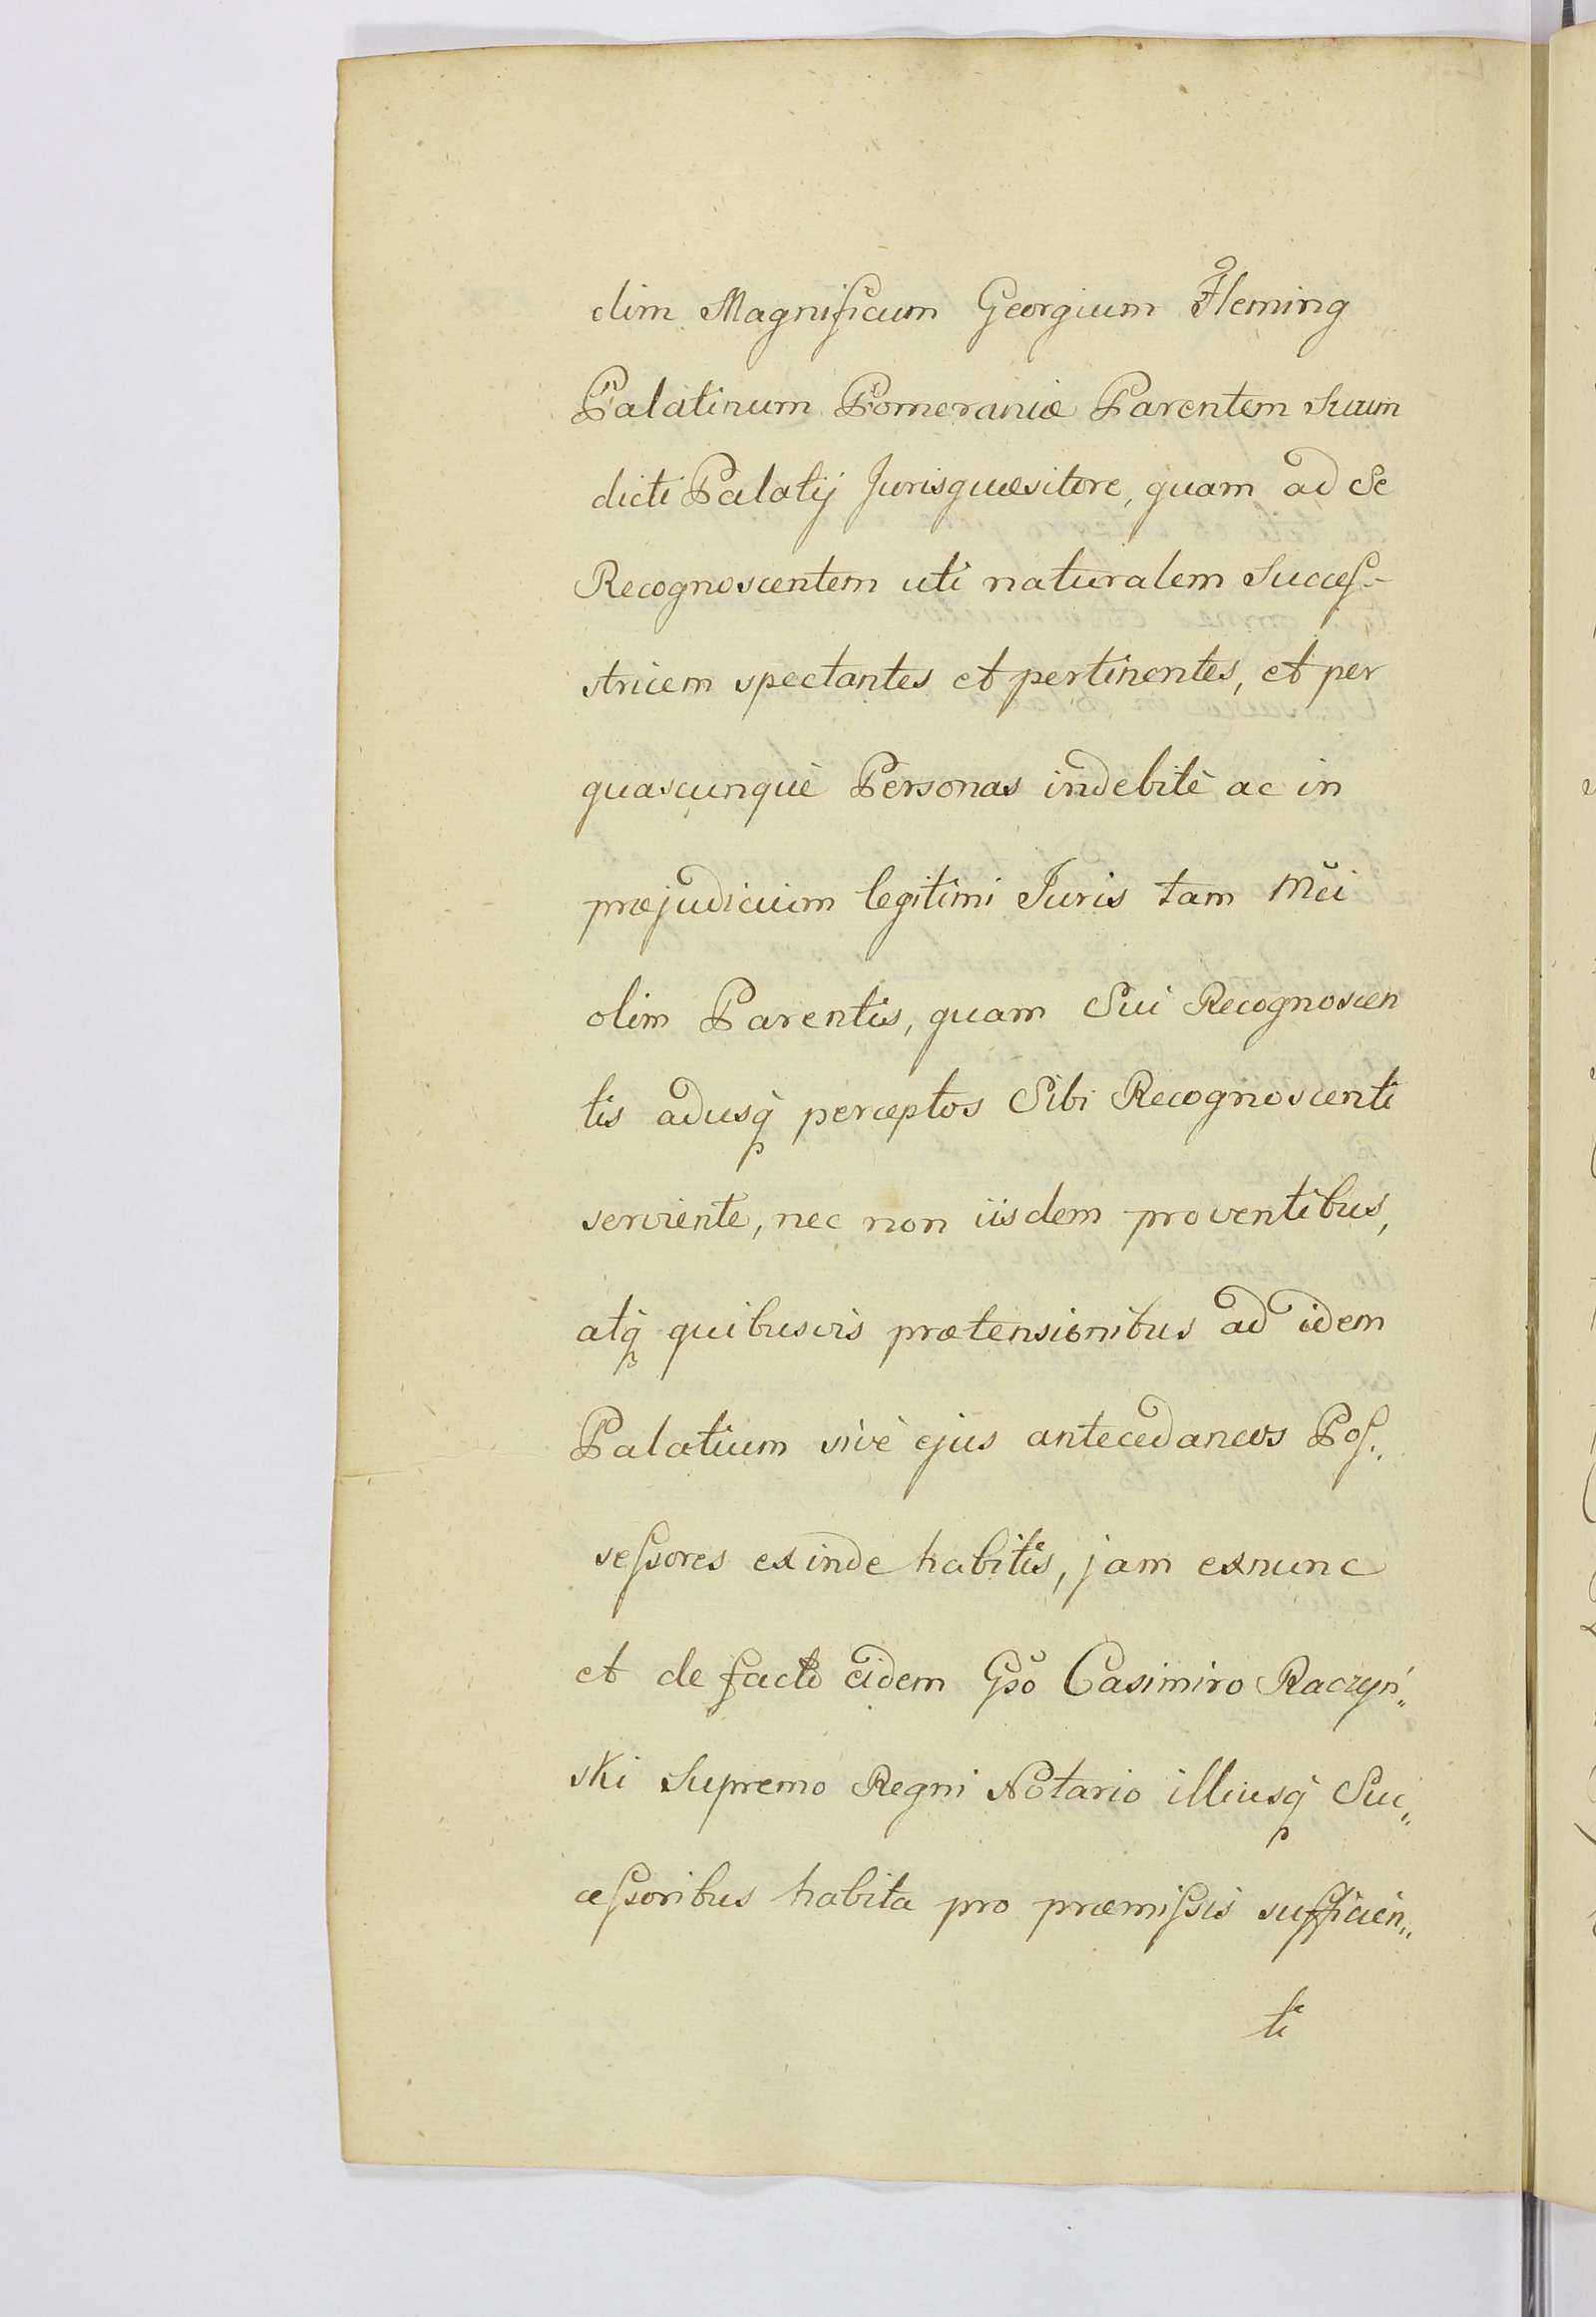 olim Magnificum Georgium Fleming
Palatinum Pomeraniæ Parentem Suum
dicti Palatij Jurisquæsitore, quam ad Se
Recognoscentem uti naturalem Succeſ-
stricem spectantes et pertinentes, et per
quascunquè Personas indebitè ac in
præjudicium legitimi Juris tam Mci
olim Parentis, quam Sui Recognoscen
tis adusq perceptos Sibi Recognoscenti
serviente, nec non iisdem proventibus,
atq quibusvis prætensionibus ad idem
Palatium sivè ejus antecedaneos Poſ„
seſsores exinde habitis, jam exnunc
et de facto eidem Gso Casimiro Raczyń„
ski Supremo Regni Notario illiusq Suc„
ceſsoribus habita pro præmiſsis sufficien„
ti